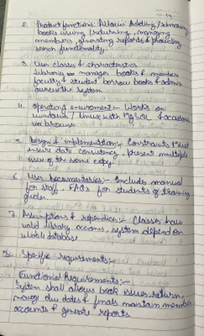 2. Product function:- Allows Adding / Removing
books issuing / returning, managing
members, generating reports & providing
search functionality.
3. User classes & characteristics
Library manager books & members
faculty & student borrow books & admin
the system
4. Operating environment:- Works on
windows / linux with MySQL & accessible
via browser
5. Design & implementation:- Constraints Must
ensure data consistency, prevent multiple
issue of the same copy.
6. User Documentaries:- Include manual
for staff, FAQs for students & training
guides.
7. Assumptions & dependencies:- Classes have
valid library access, system depend on
database
Specific requirements:-
Functional Requirements:-
System shall allow book issue, return,
manage due dates & maintain member
accounts & generate reports.